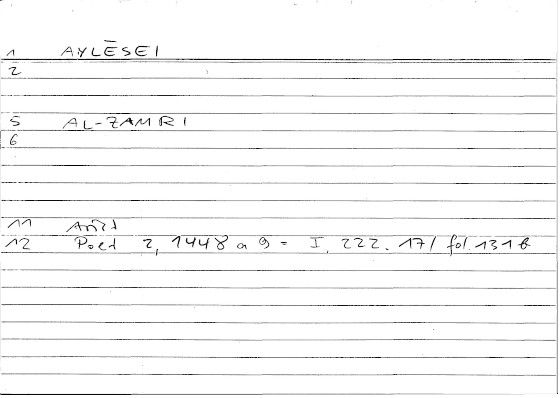 1 AYLĒSEI
2
5 AL-ZAMRI
6
11 Arist
12 Poet 2, 1448 a 9 = I, 222. 17/ fol. 131 b